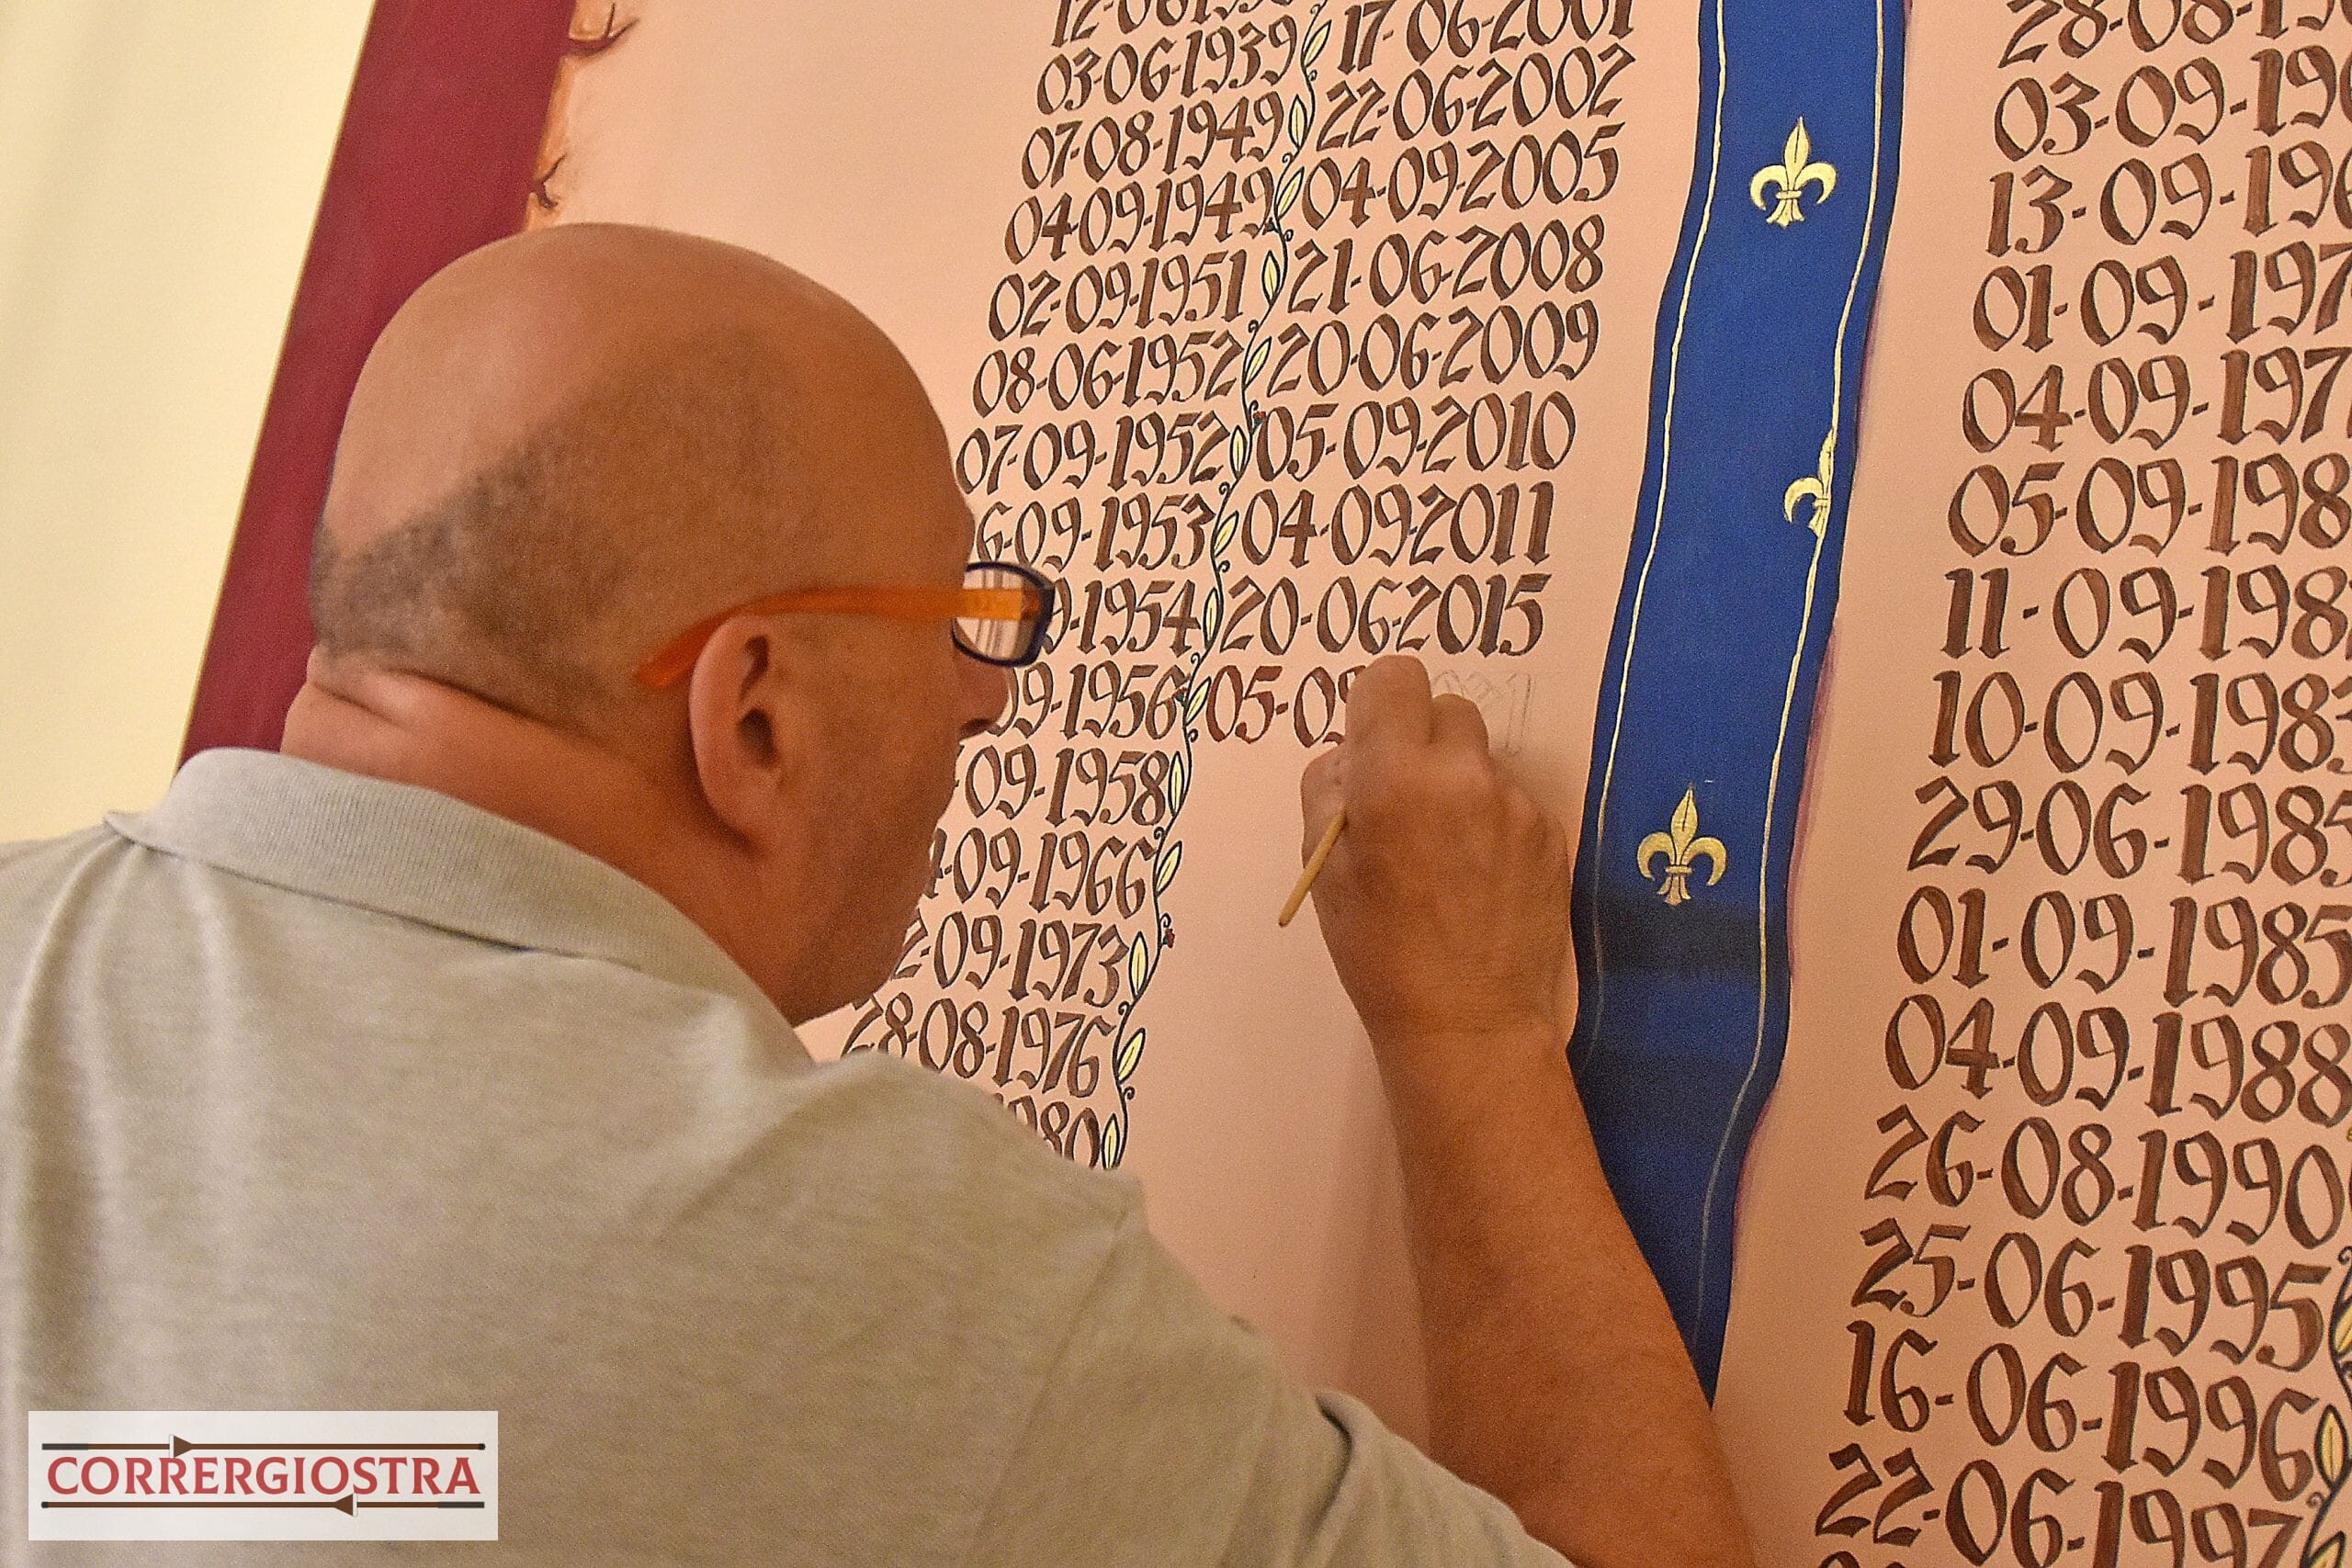 03-06-1939
07-08-1949
04-09-1949
02-09-1951
08-06-1952
07-09-1952
6-09-1953
9-1954
09-1956
-09-1958
-09-1966
2-09-1973
28-08-1976
1980
17-06-2001
22-06-2002
04-09-2005
21-06-2008
20-06-2009
05-09-2010
04-09-2011
20-06-2015
05-09
28-08-19
03-09-196
13-09-196
01-09-197
04-09-197
05-09-198
11-09-198
10-09-1983
29-06-1985
01-09-1985
04-09-1988
26-08-1990
25-06-1995
16-06-1996
22-06-1997
CORRERGIOSTRA